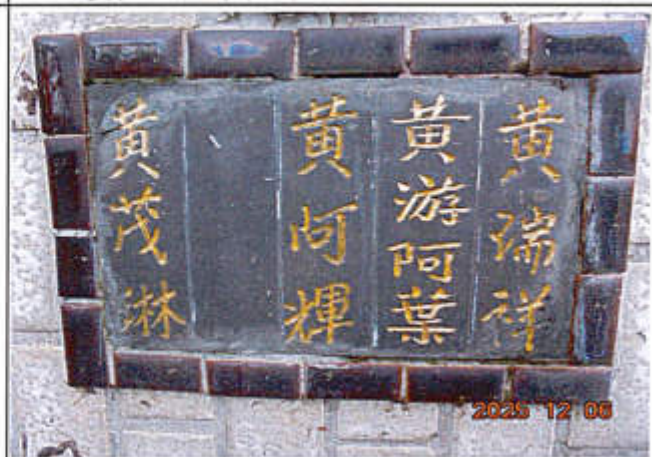 黄瑞祥
黄游阿葉
黄阿輝
黄茂淋
2025 12 06